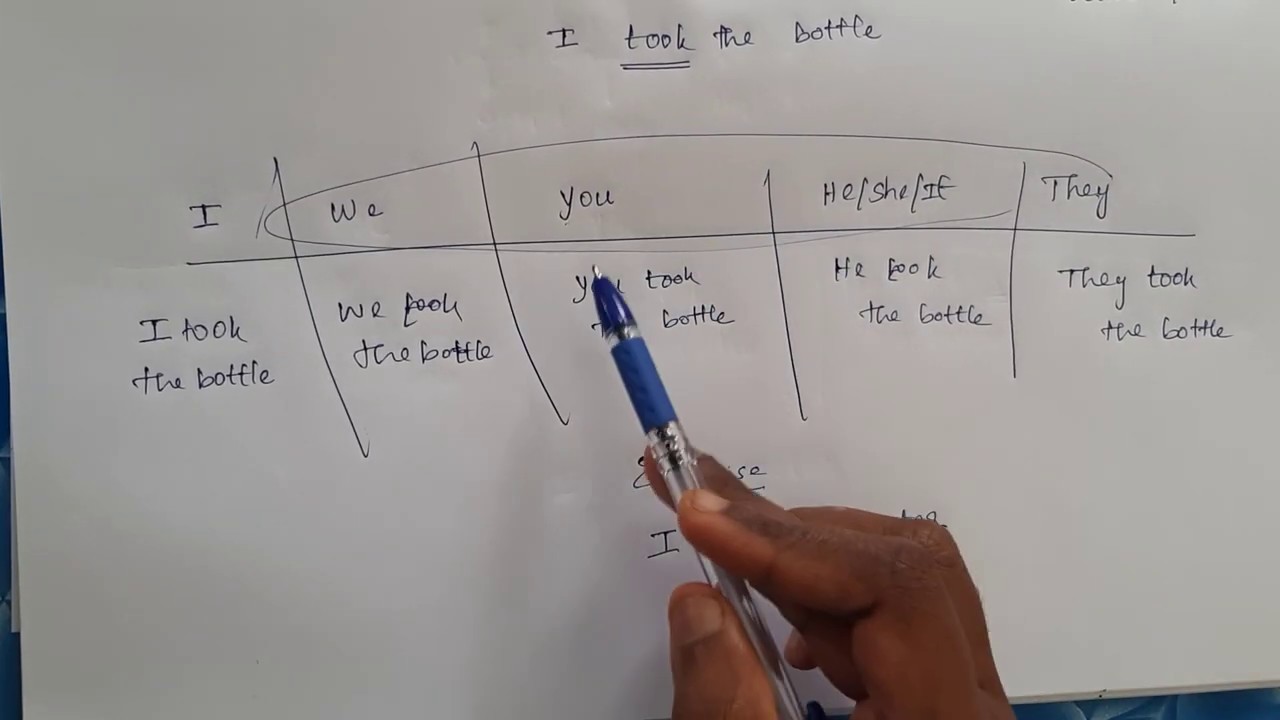 I took the bottle
I We you He/She/It They
I took
the bottle
We took
the bottle
took
bottle
He took
the bottle
They took
the bottle
I